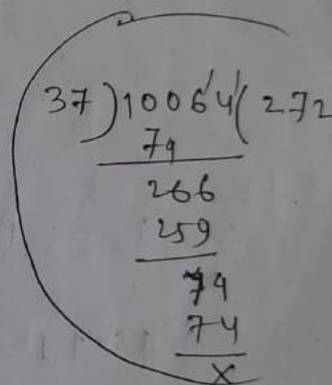 37)10064(272
74
266
259
74
74
x